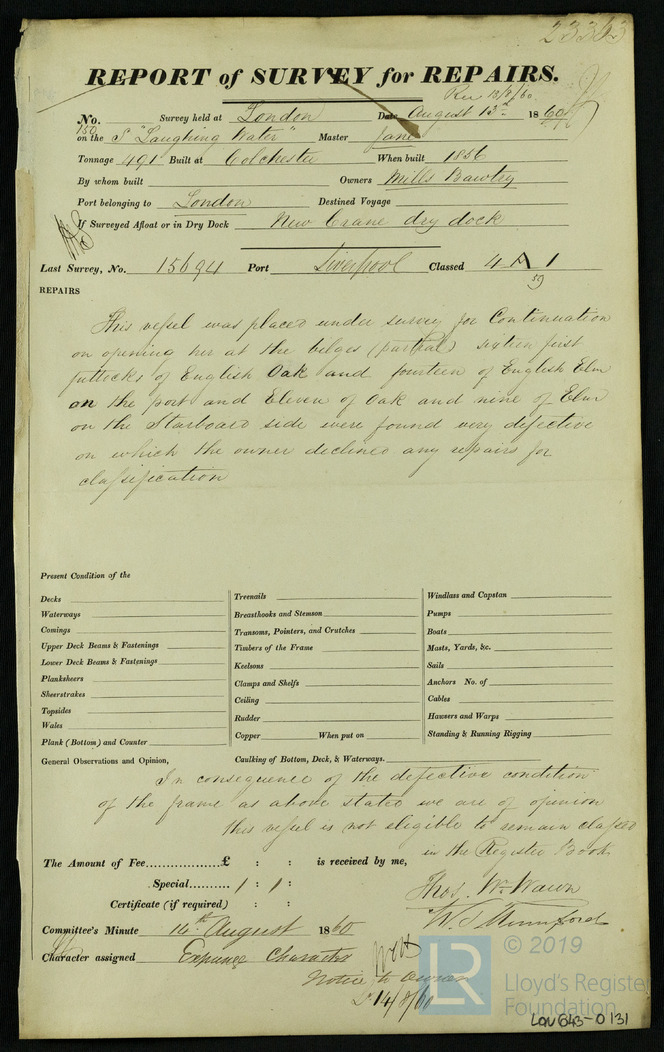 23363
REPORT of SURVEY for REPAIRS.
Rec 13/8/60
No. Survey held at London Date August 13th 1860
150
on the S "Laughing Water" Master Jane
Tonnage 491 Built at Colchester When built 1856
By whom built Owners Mills Bawtey
Port belonging to London Destined Voyage
If Surveyed Afloat or in Dry Dock New Crane dry dock
Last Survey, No. 15694 Port Liverpool Classed 4 A 1
59
REPAIRS
This vessel was placed under survey for Continuation
on opening her at the bilges (partial) sixteen first
futtocks of English Oak and fourteen of English Elm
on the port and Eleven of Oak and nine of Elm
on the Starboard side were found very defective
on which the owner declined any repairs for
classification
Present Condition of the
Decks
Waterways
Comings
Upper Deck Beams & Fastenings
Lower Deck Beams & Fastenings
Planksheers
Sheerstrakes
Topsides
Wales
Plank (Bottom) and Counter
Treenails
Breasthooks and Stemson
Transoms, Pointers, and Crutches
Timbers of the Frame
Keelsons
Clamps and Shelfs
Ceiling
Rudder
Copper When put on
Windlass and Capstan
Pumps
Boats
Masts, Yards, &c.
Sails
Anchors No. of
Cables
Hawsers and Warps
Standing & Running Rigging
General Observations and Opinion, Caulking of Bottom, Deck, & Waterways.
In consequence of the defective condition
of the frame as above stated we are of opinion
this vessel is not eligible to remain classed
in the Register Book
The Amount of Fee................£ : : is received by me,
Special.......... 1 : 1 :
Thos. Wm. Wawn
Certificate (if required) : :
W. T. Mumford
Committee's Minute 14th August 1860
Character assigned Expunge Character
Notice to Owner
14/8/60
LR
© 2019
Lloyd's Register
Foundation
LON643-0131